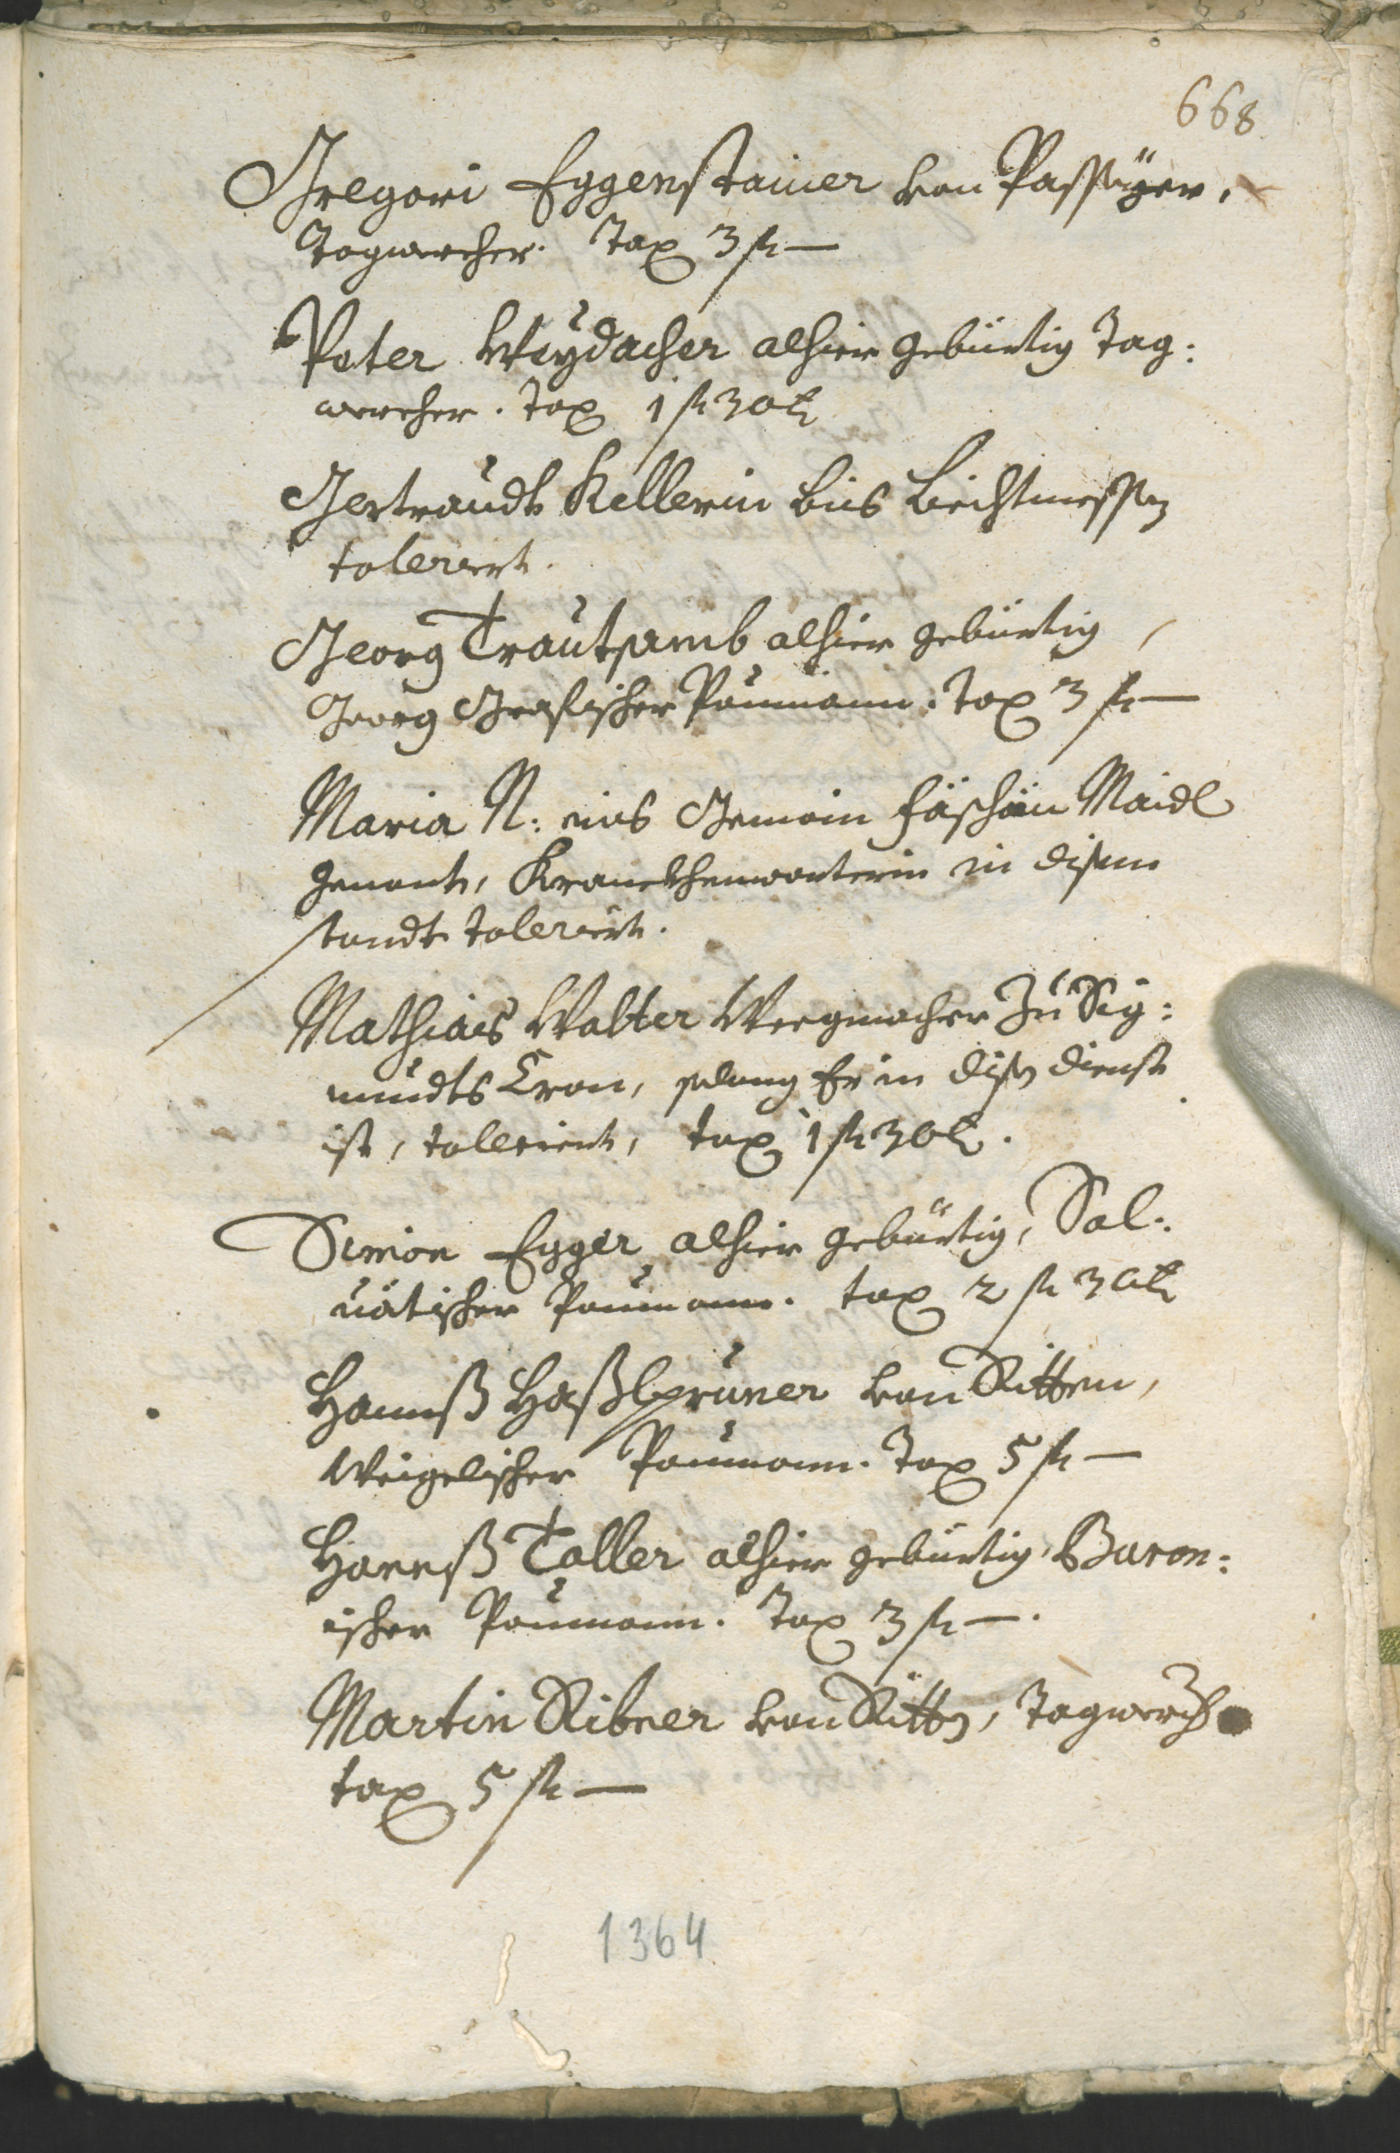 668
Gregori Eggenstainer von Passeyer,
Tagwercher. Tax 3 fl —
Peter Weydacher alhier gebürtig Tag:
wercher. Tax 1 fl 30 k
Gertraudt Kellerin bis Liechtmessen
toleriert.
Georg Trautsamb alhier gebürtig,
Georg Grafischer Paumann. Tax 3 fl —
Maria N: ins Gemain Maidl
genant, Kranckhenwarterin in disem
standt toleriert.
Mathias Walter Weegmacher Zu Sig:
mundts Cron, solang Er in disen dienst
ist, tolleriert, tax 1 fl 30 k.
Simon Egger alhier gebürtig, Sal:
uatischer Paumann. tax 2 fl 30 k
Hannß Haßlpruner von Ritten,
Weigelischer Paumann. Tax 5 fl —
Hannß Taller alhier gebürtig, Baron:
ischer Paumann. Tax 3 fl —.
Martin Ribner von Ritten, Tagwercher
tax 5 fl —
1364